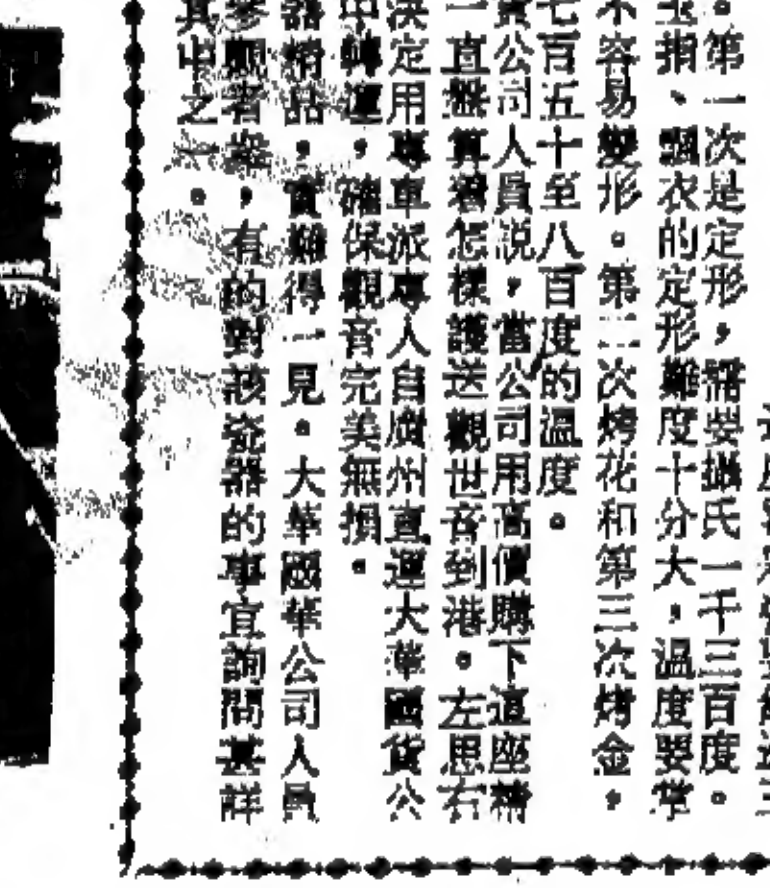 。第一次是定形，需要攝氏一千三百度。
玉指、飄衣的定形難度十分大，溫度要掌
不容易變形。第二次烤花和第三次烤金，
七百五十至八百度的溫度。
貨公司人員說，當公司用高價購下這座精
一直盤算着怎樣護送觀世音到港。左思右
決定用專車派專人自廣州直運大華國貨公
中轉運，確保觀音完美無損。
器精品，實難得一見。大華國華公司人員
參觀者眾，有的對該瓷器的事宜詢問甚詳
其中之一。